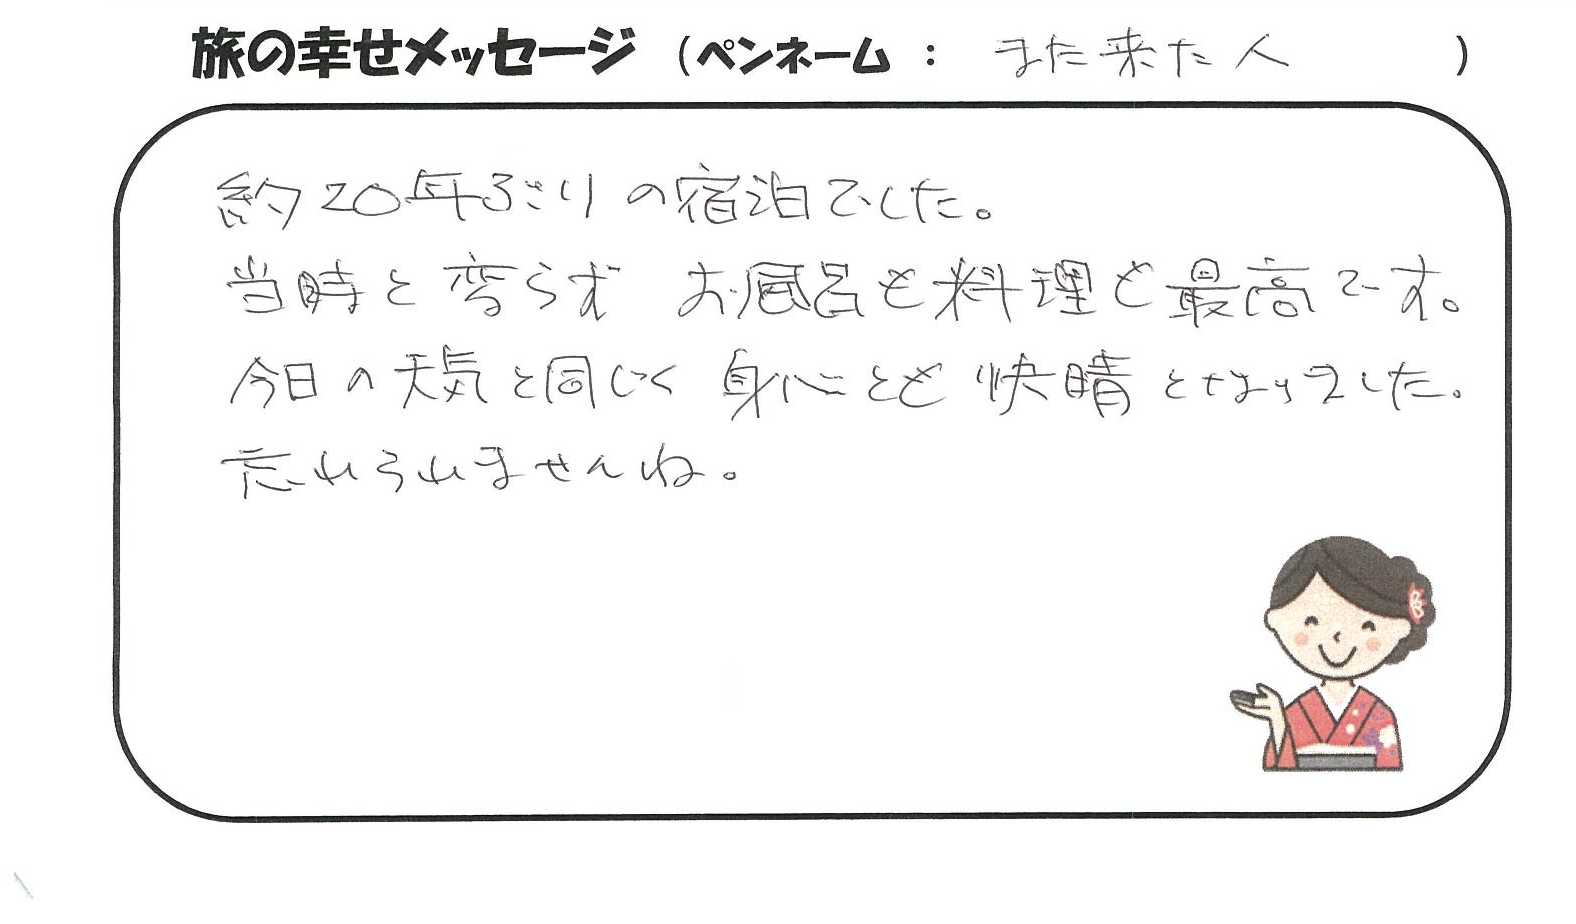 旅の幸せメッセージ (ペンネーム : また来た人 )
約20年ぶりの宿泊でした。
当時と変らず お風呂も料理も最高です。
今日の天気と同じく 身心とも 快晴となりました。
忘れられませんね。